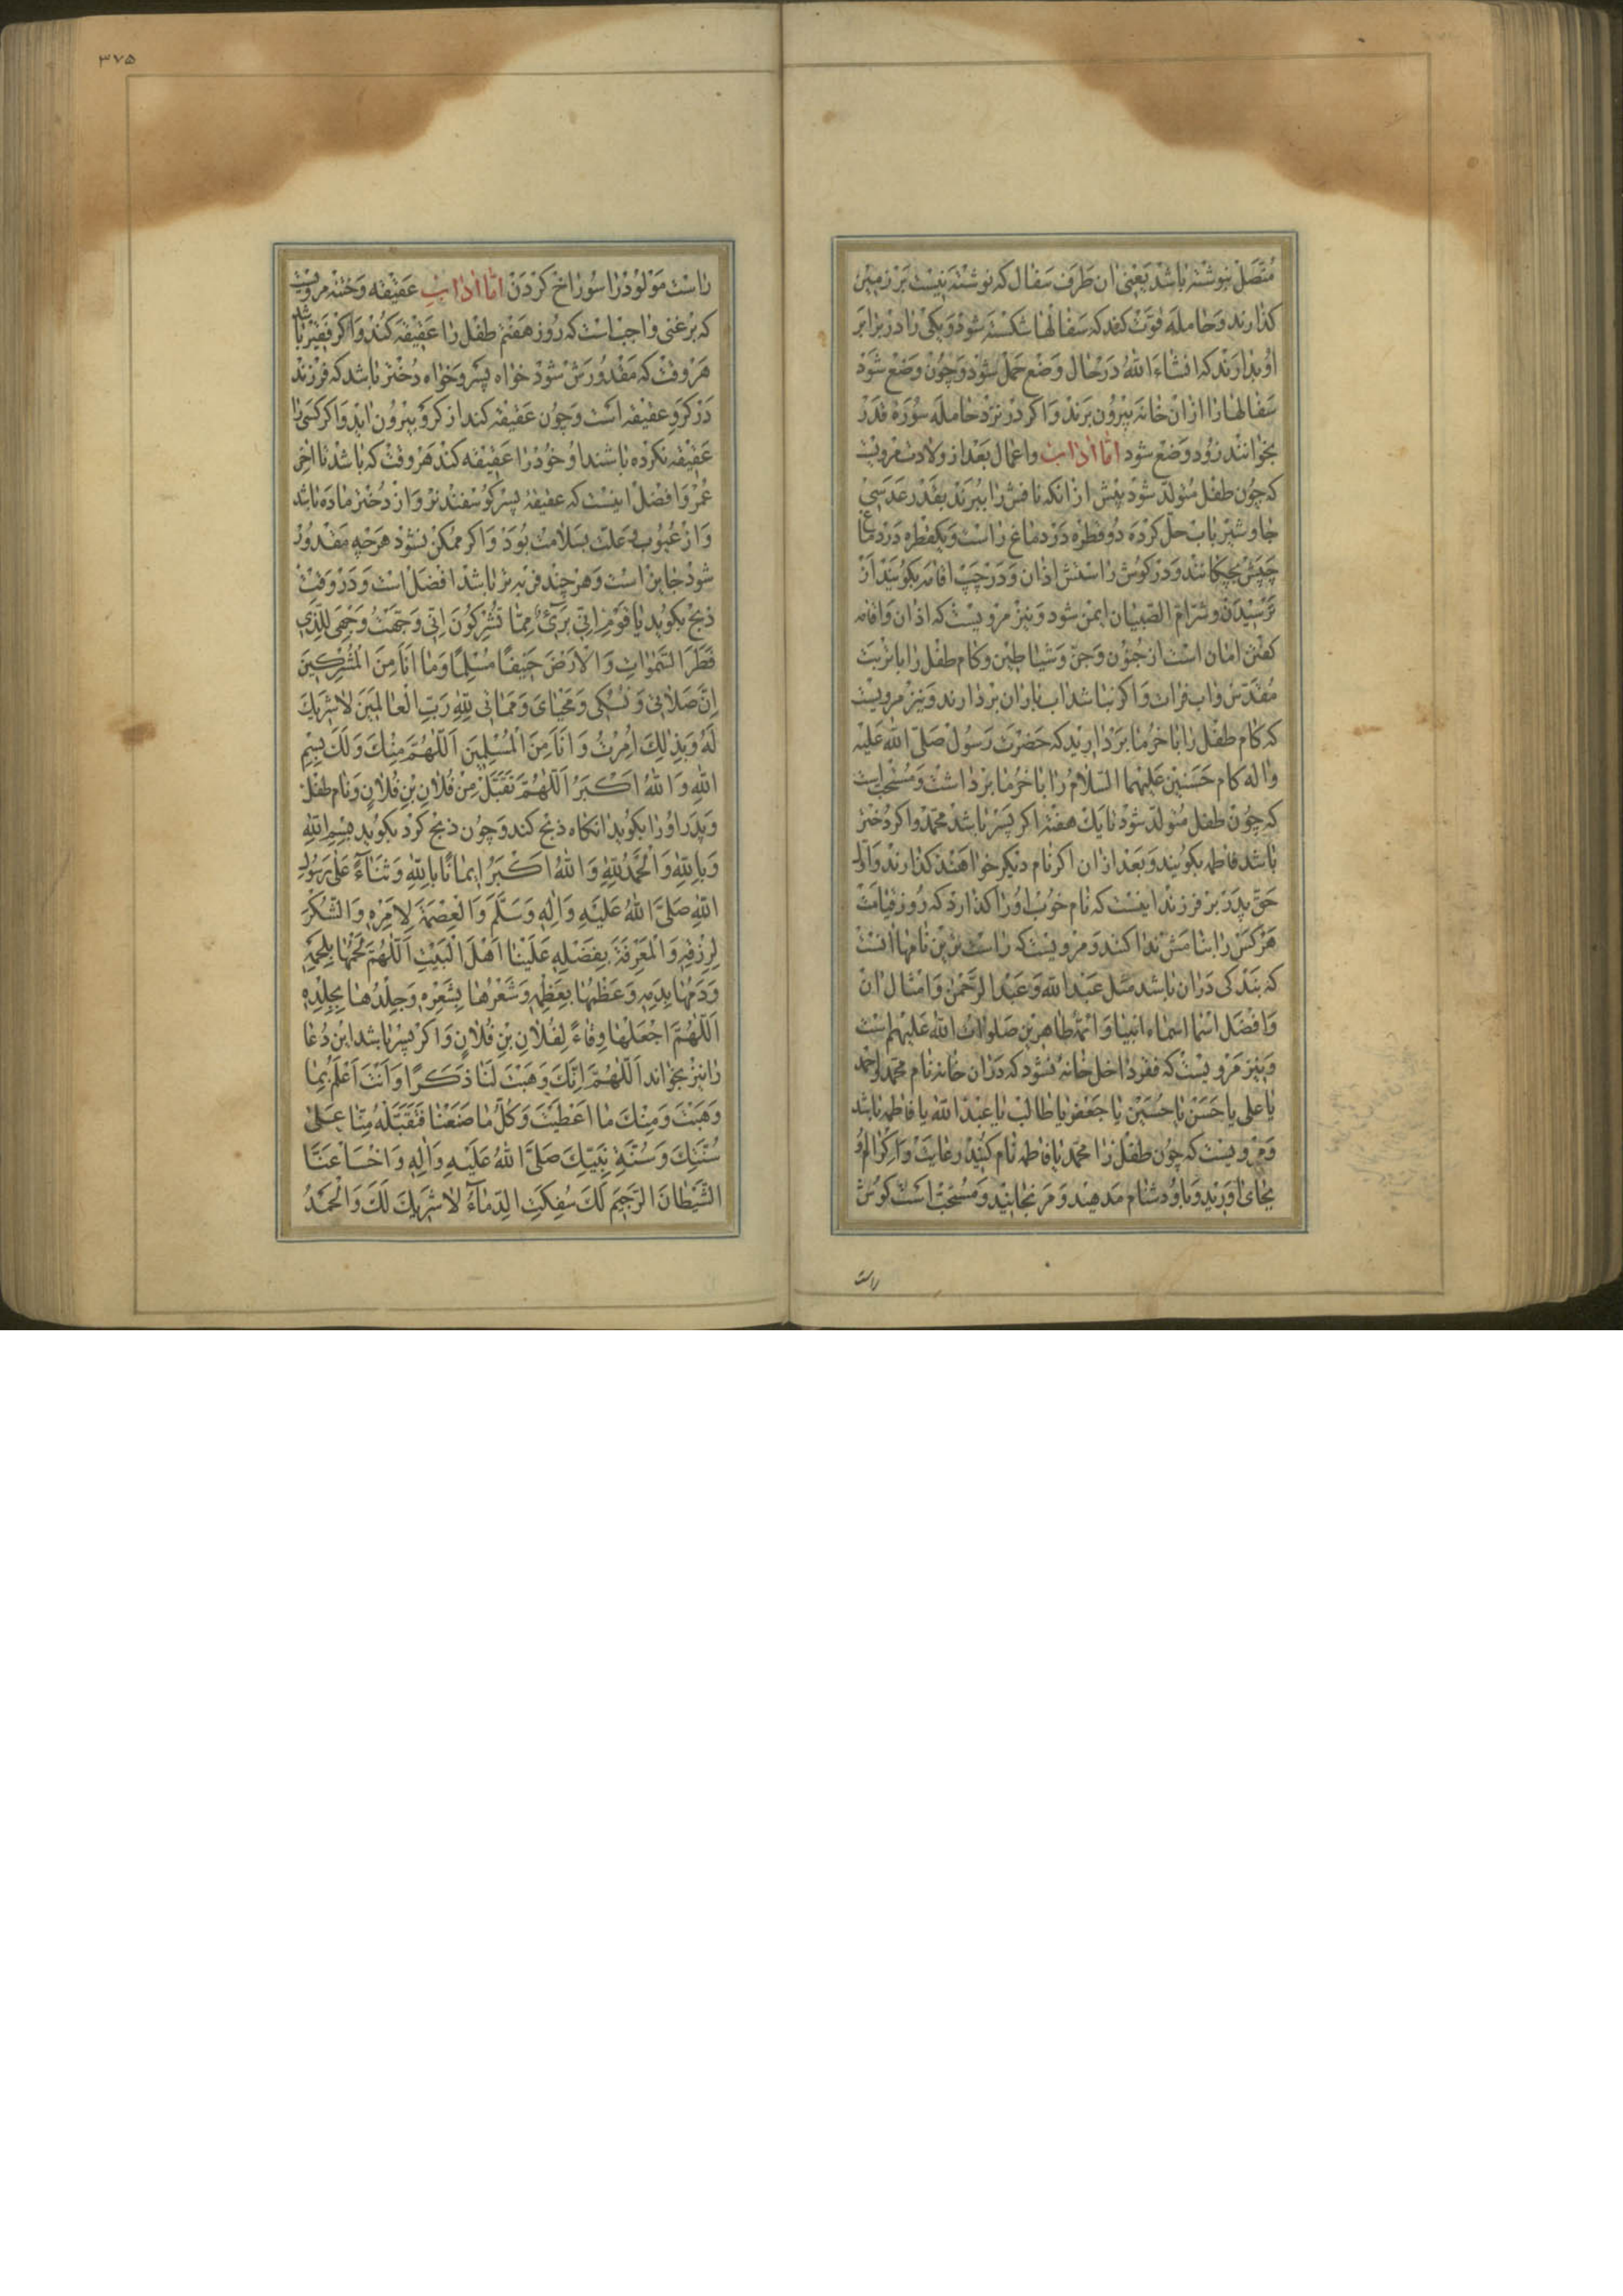 متصل نوشته باشد یعنی ان طرف سفال که نوشته نیست بر زمین
کذارند و حامله قوت کند که سفالها شکسته شود و یکی را در برابر
او بدارند که انشاء الله در حال وضع حمل شود و چون وضع شود
سفالها را از ان خانه بیرون برند و اکر در نزد حامله سوره قدر
بخوانند زود وضع شود اما اداب واعمال بعد از ولادت مرویست
که چون طفل متولد شود پیش از انکه نافش را ببرند بقدر عدسی
جاوشیر باب حل کرده دو قطره در دماغ راست و یکقطره در دماغ
چپش بچکانند و در کوش راستش اذان و در چپ اقامه بکویند از
ترسیدن و شر ام الصبیان ایمن شود و نیز مرویست که اذان و اقامه
کفتن امان است از جنون و جن و شیاطین و کام طفل را با تربت
مقدس واب فرات و اکر نباشد اب باران بردارند و نیز مرویست
که کام طفل را با خرما بردارید که حضرت رسول صلی الله علیه
واله کام حسنین علیهما السلام را با خرما برداشت و مستحبست
که چون طفل متولد شود تا یک هفته اکر پسر باشد محمد واکر دختر
باشد فاطمه بکویند و بعد از ان اکر نام دیکر خواهند کذارند و اول
حق پدر بر فرزند اینست که نام خوب اورا کذارد که روز قیامت
هرکس را بنامش ندا کنند و مرویست که راست ترین نامها انست
که بندکی در ان باشد مثل عبد الله و عبد الرحمن و امثال ان
و افضل اسما اسماء انبیا و ائمه طاهرین صلوات الله علیهم است
و نیز مرویست که فقر داخل خانه نشود که در ان خانه نام محمد واحمد
یا علی یا حسن یا حسین یا جعفر یا طالب یا عبد الله یا فاطمه باشد
و مرویست که چون طفل را محمد یا فاطمه نام کنید رعایت و اکرام او
بجای اورید و باو دشنام مدهید و مرنجانید و مستحب است کوش
راست
٣٧۵
راست مولود را سوراخ کردن اما اداب عقیقه و ختنه مرویست
که بر غنی واجب است که روز هفتم طفل را عقیقه کند و اکر فقیر باشد
هر وقت که مقدورش شود خواه پسر و خواه دختر باشد که فرزند
در کرو عقیقه است و چون عقیقه کند از کرو بیرون اید و اکر کسی را
عقیقه نکرده باشند او خود را عقیقه کند هر وقت که باشد تا اخر
عمر و افضل اینست که عقیقه پسر کوسفند نر و از دختر ماده باشد
و از عیوب و علت بسلامت بود و اکر ممکن نشود هرچه مقدور
شود جایز است و هر چند فربه تر باشد افضل است و در وقت
ذبح بکوید یا قوم انی بریء مما تشرکون انی وجهت وجهی للذی
فطر السموات و الارض حنیفا مسلما وما انا من المشرکین
ان صلاتی و نسکی و محیای و مماتی لله رب العالمین لا شریک
له و بذلک امرت و انا من المسلمین اللهم منک و لک بسم
الله و الله اکبر اللهم تقبل من فلان بن فلان و نام طفل
و پدر اورا بکوید انکاه ذبح کند و چون ذبح کرد بکوید بسم الله
و بالله و الحمد لله و الله اکبر ایمانا بالله و ثناء علی رسول
الله صلی الله علیه و اله و سلم و العصمة لامره و الشکر
لرزقه و المعرفة بفضله علینا اهل البیت اللهم لحمها بلحمه
و دمها بدمه و عظمها بعظمه و شعرها بشعره و جلدها بجلده
اللهم اجعلها وقاء لفلان بن فلان و اکر پسر باشد این دعا
را نیز بخواند اللهم انک وهبت لنا ذکرا و انت اعلم بما
وهبت و منک ما اعطیت و کل ما صنعنا فتقبله منا علی
سنتک و سنة نبیک صلی الله علیه و اله و اخسأ عنا
الشیطان الرجیم لک سفکت الدماء لا شریک لک و الحمد